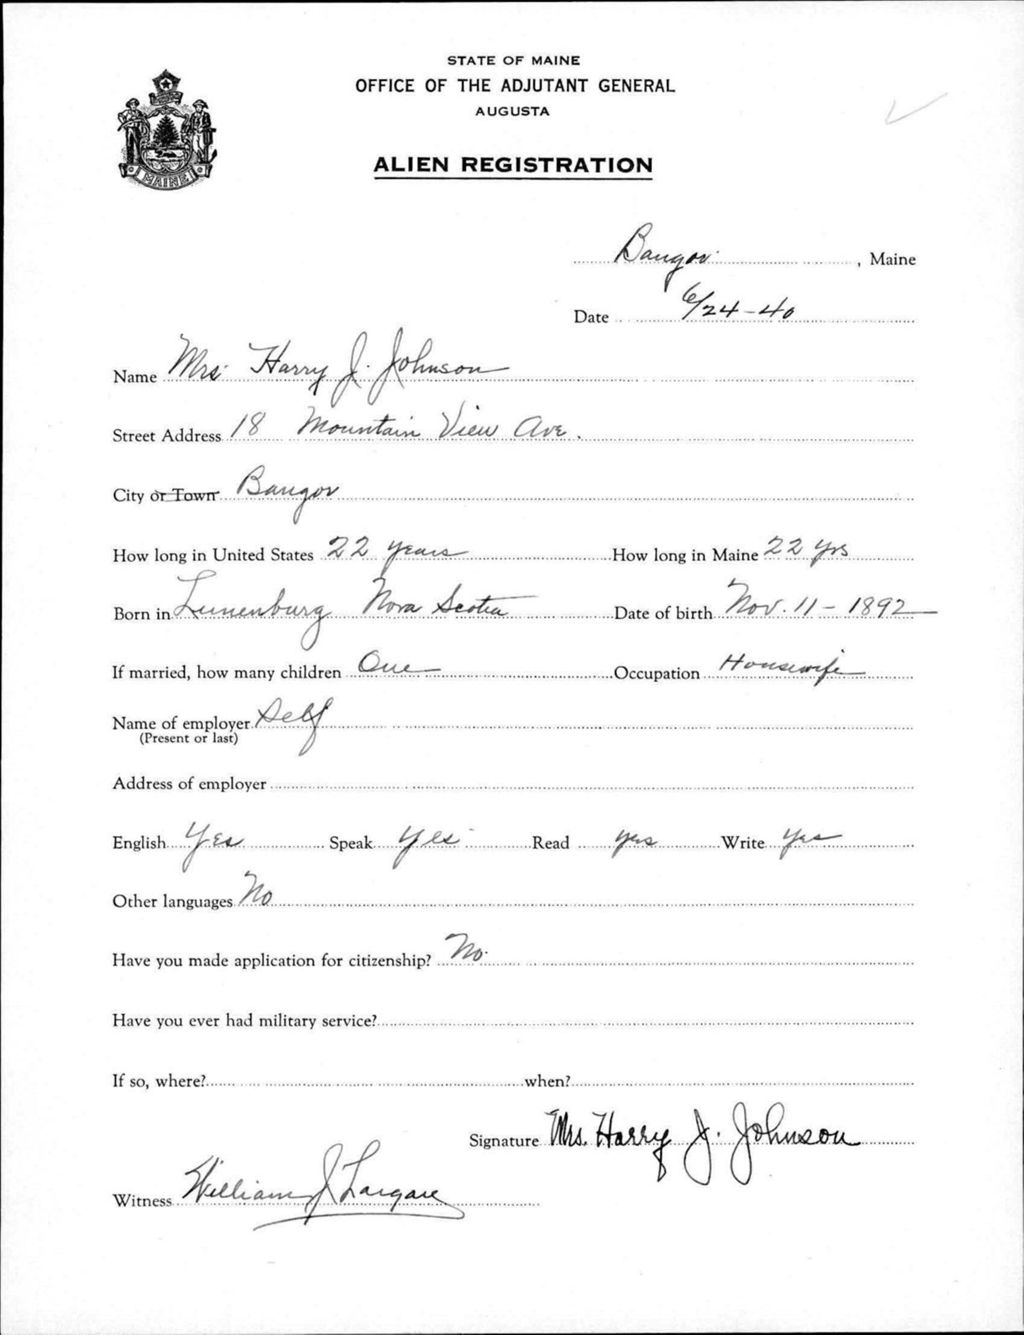 STATE OF MAINE
OFFICE OF THE ADJUTANT GENERAL
AUGUSTA
ALIEN REGISTRATION
MAINE
Bangor, Maine
Date 6/24-40
Name Mrs. Harry J. Johnson
Street Address 18 Mountain View Ave.
City or Town Bangor
How long in United States 22 years How long in Maine 22 yrs
Born in Lunenburg Nova Scotia Date of birth Nov. 11 - 1892
If married, how many children One Occupation Housewife
Name of employer Self
(Present or last)
Address of employer
English Yes Speak Yes Read yes Write Yes
Other languages No
Have you made application for citizenship? No.
Have you ever had military service?
If so, where? when?
Signature Mrs. Harry J. Johnson
Witness William J